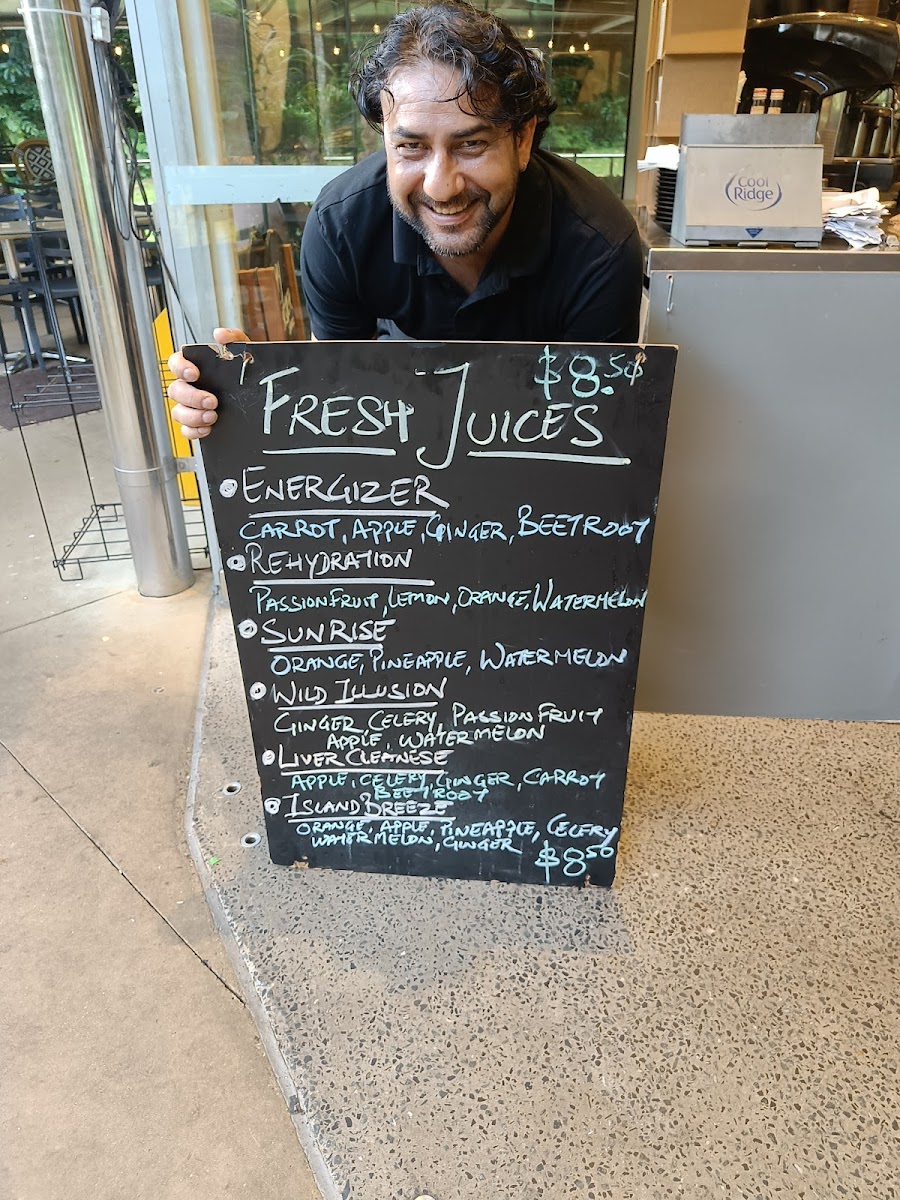 Cool
Ridge
$8.50
FRESH JUICES
ENERGIZER
CARROT, APPLE, GINGER, BEETROOT
REHYDRATION
PASSIONFRUIT, LEMON, ORANGE, WATERMELON
SUNRISE
ORANGE, PINEAPPLE, WATERMELON
WILD ILLUSION
GINGER, CELERY, PASSION FRUIT
APPLE, WATERMELON
LIVER CLEANESE
APPLE, CELERY, GINGER, CARROT
BEETROOT
ISLAND BREEZE
ORANGE, APPLE, PINEAPPLE, CELERY
WATERMELON, GINGER
$8.50